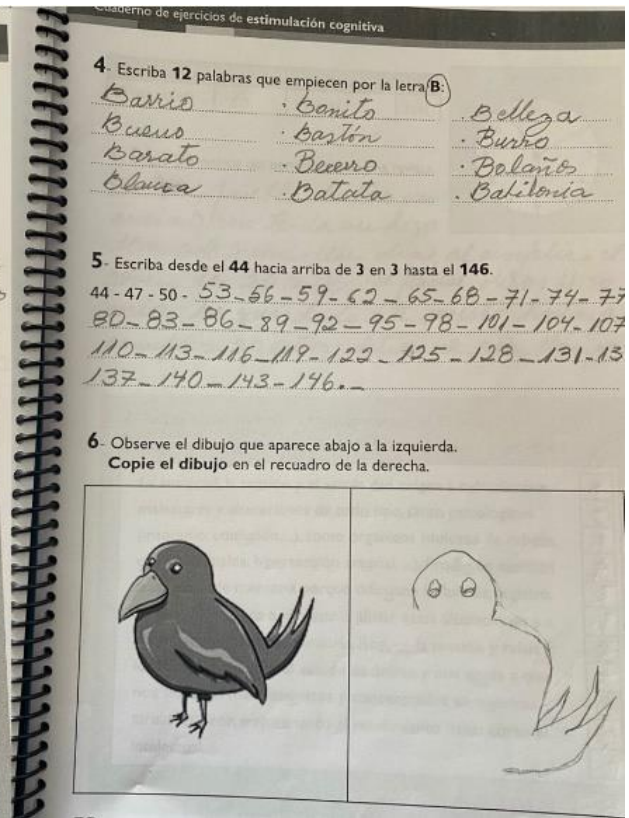 Cuaderno de ejercicios de estimulación cognitiva
4- Escriba 12 palabras que empiecen por la letra B:
Barrio . bonito . Belleza
Bueno . bastón . Burro
Barato . Becerro . Bolaños
Blanca . Batata . Babilonia
5- Escriba desde el 44 hacia arriba de 3 en 3 hasta el 146.
44 - 47 - 50 - 53 - 56 - 59 - 62 - 65 - 68 - 71 - 74 - 77
80 - 83 - 86 - 89 - 92 - 95 - 98 - 101 - 104 - 107
110 - 113 - 116 - 119 - 122 - 125 - 128 - 131 - 13
137 - 140 - 143 - 146. -
6- Observe el dibujo que aparece abajo a la izquierda.
Copie el dibujo en el recuadro de la derecha.